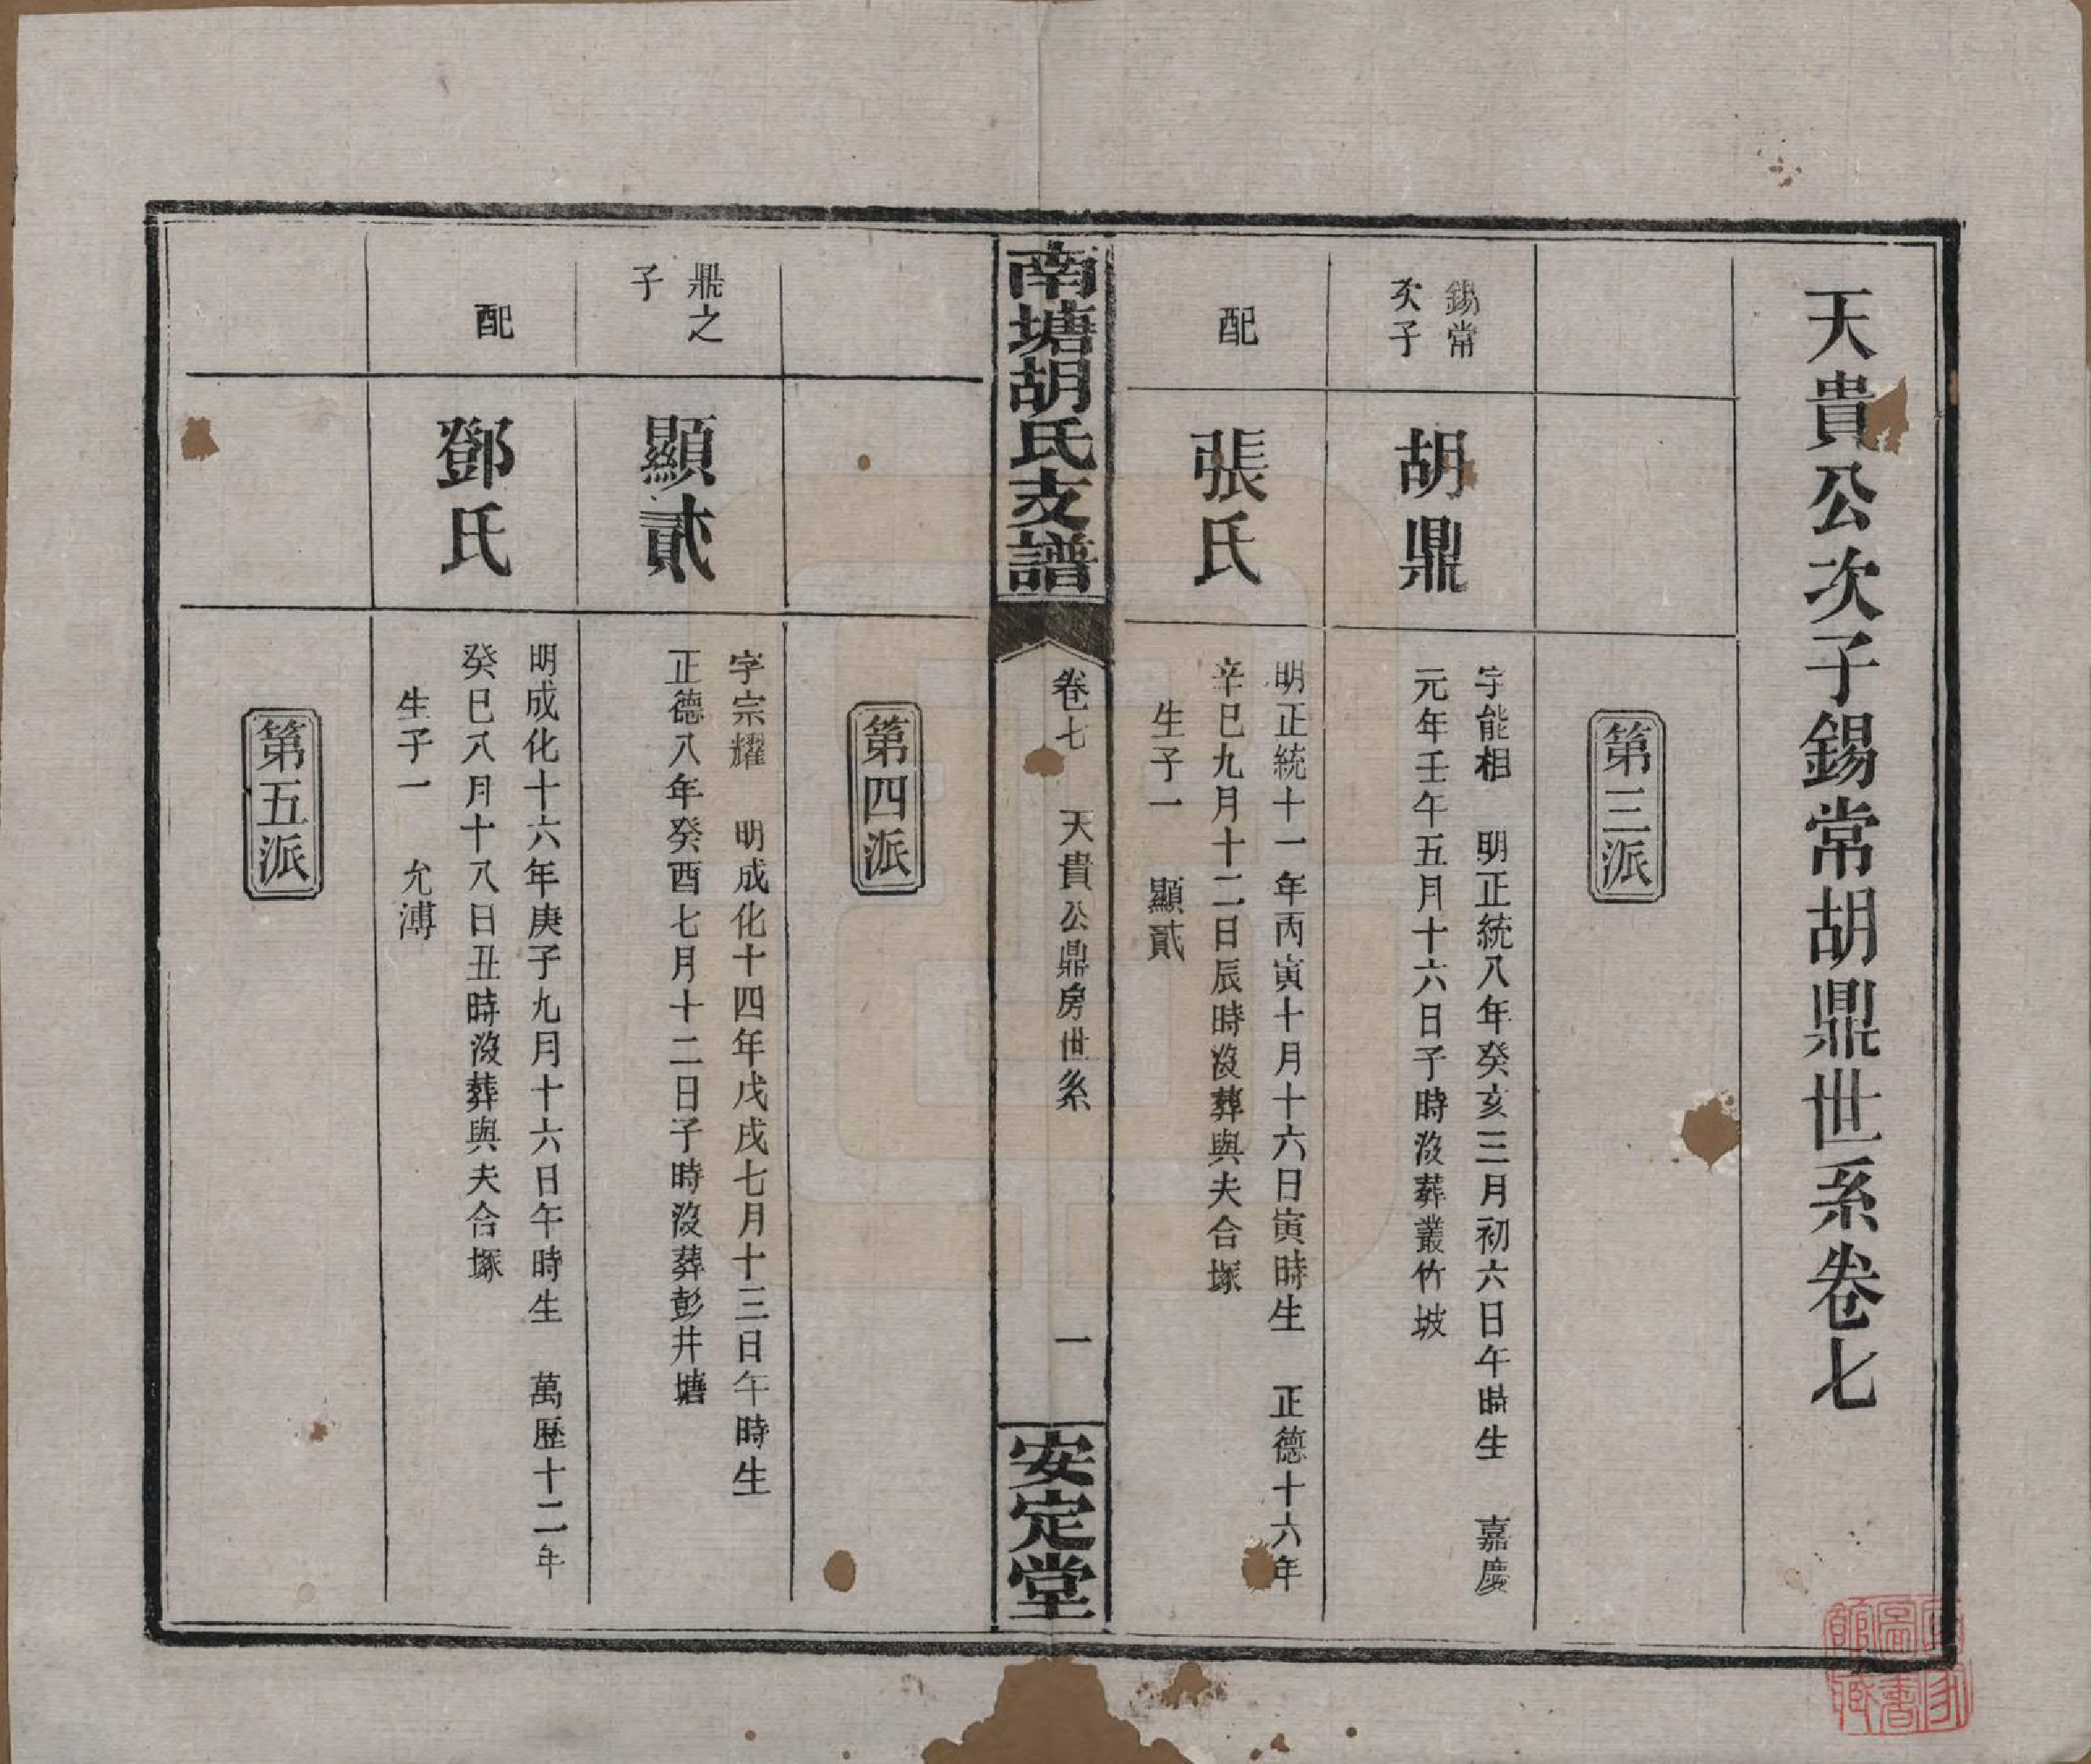 天貴公次子錫常胡鼎世系卷七
第三派
錫常
次子
胡鼎
字能相　明正統八年癸亥三月初六日午時生　嘉慶
元年壬午五月十六日子時沒葬叢竹坡
配
張氏
明正統十一年丙寅十月十六日寅時生　正德十六年
辛巳九月十二日辰時沒葬與夫合塚
生子一　顯貳
南塘胡氏支譜
卷七　天貴公鼎房世系
一
安定堂
第四派
鼎之
子
顯貳
字宗耀　明成化十四年戊戌七月十三日午時生
正德八年癸酉七月十二日子時沒葬彭井塘
配
鄧氏
明成化十六年庚子九月十六日午時生　萬歷十二年
癸巳八月十八日丑時沒葬與夫合塚
生子一　允溥
第五派
國家
圖書
館藏